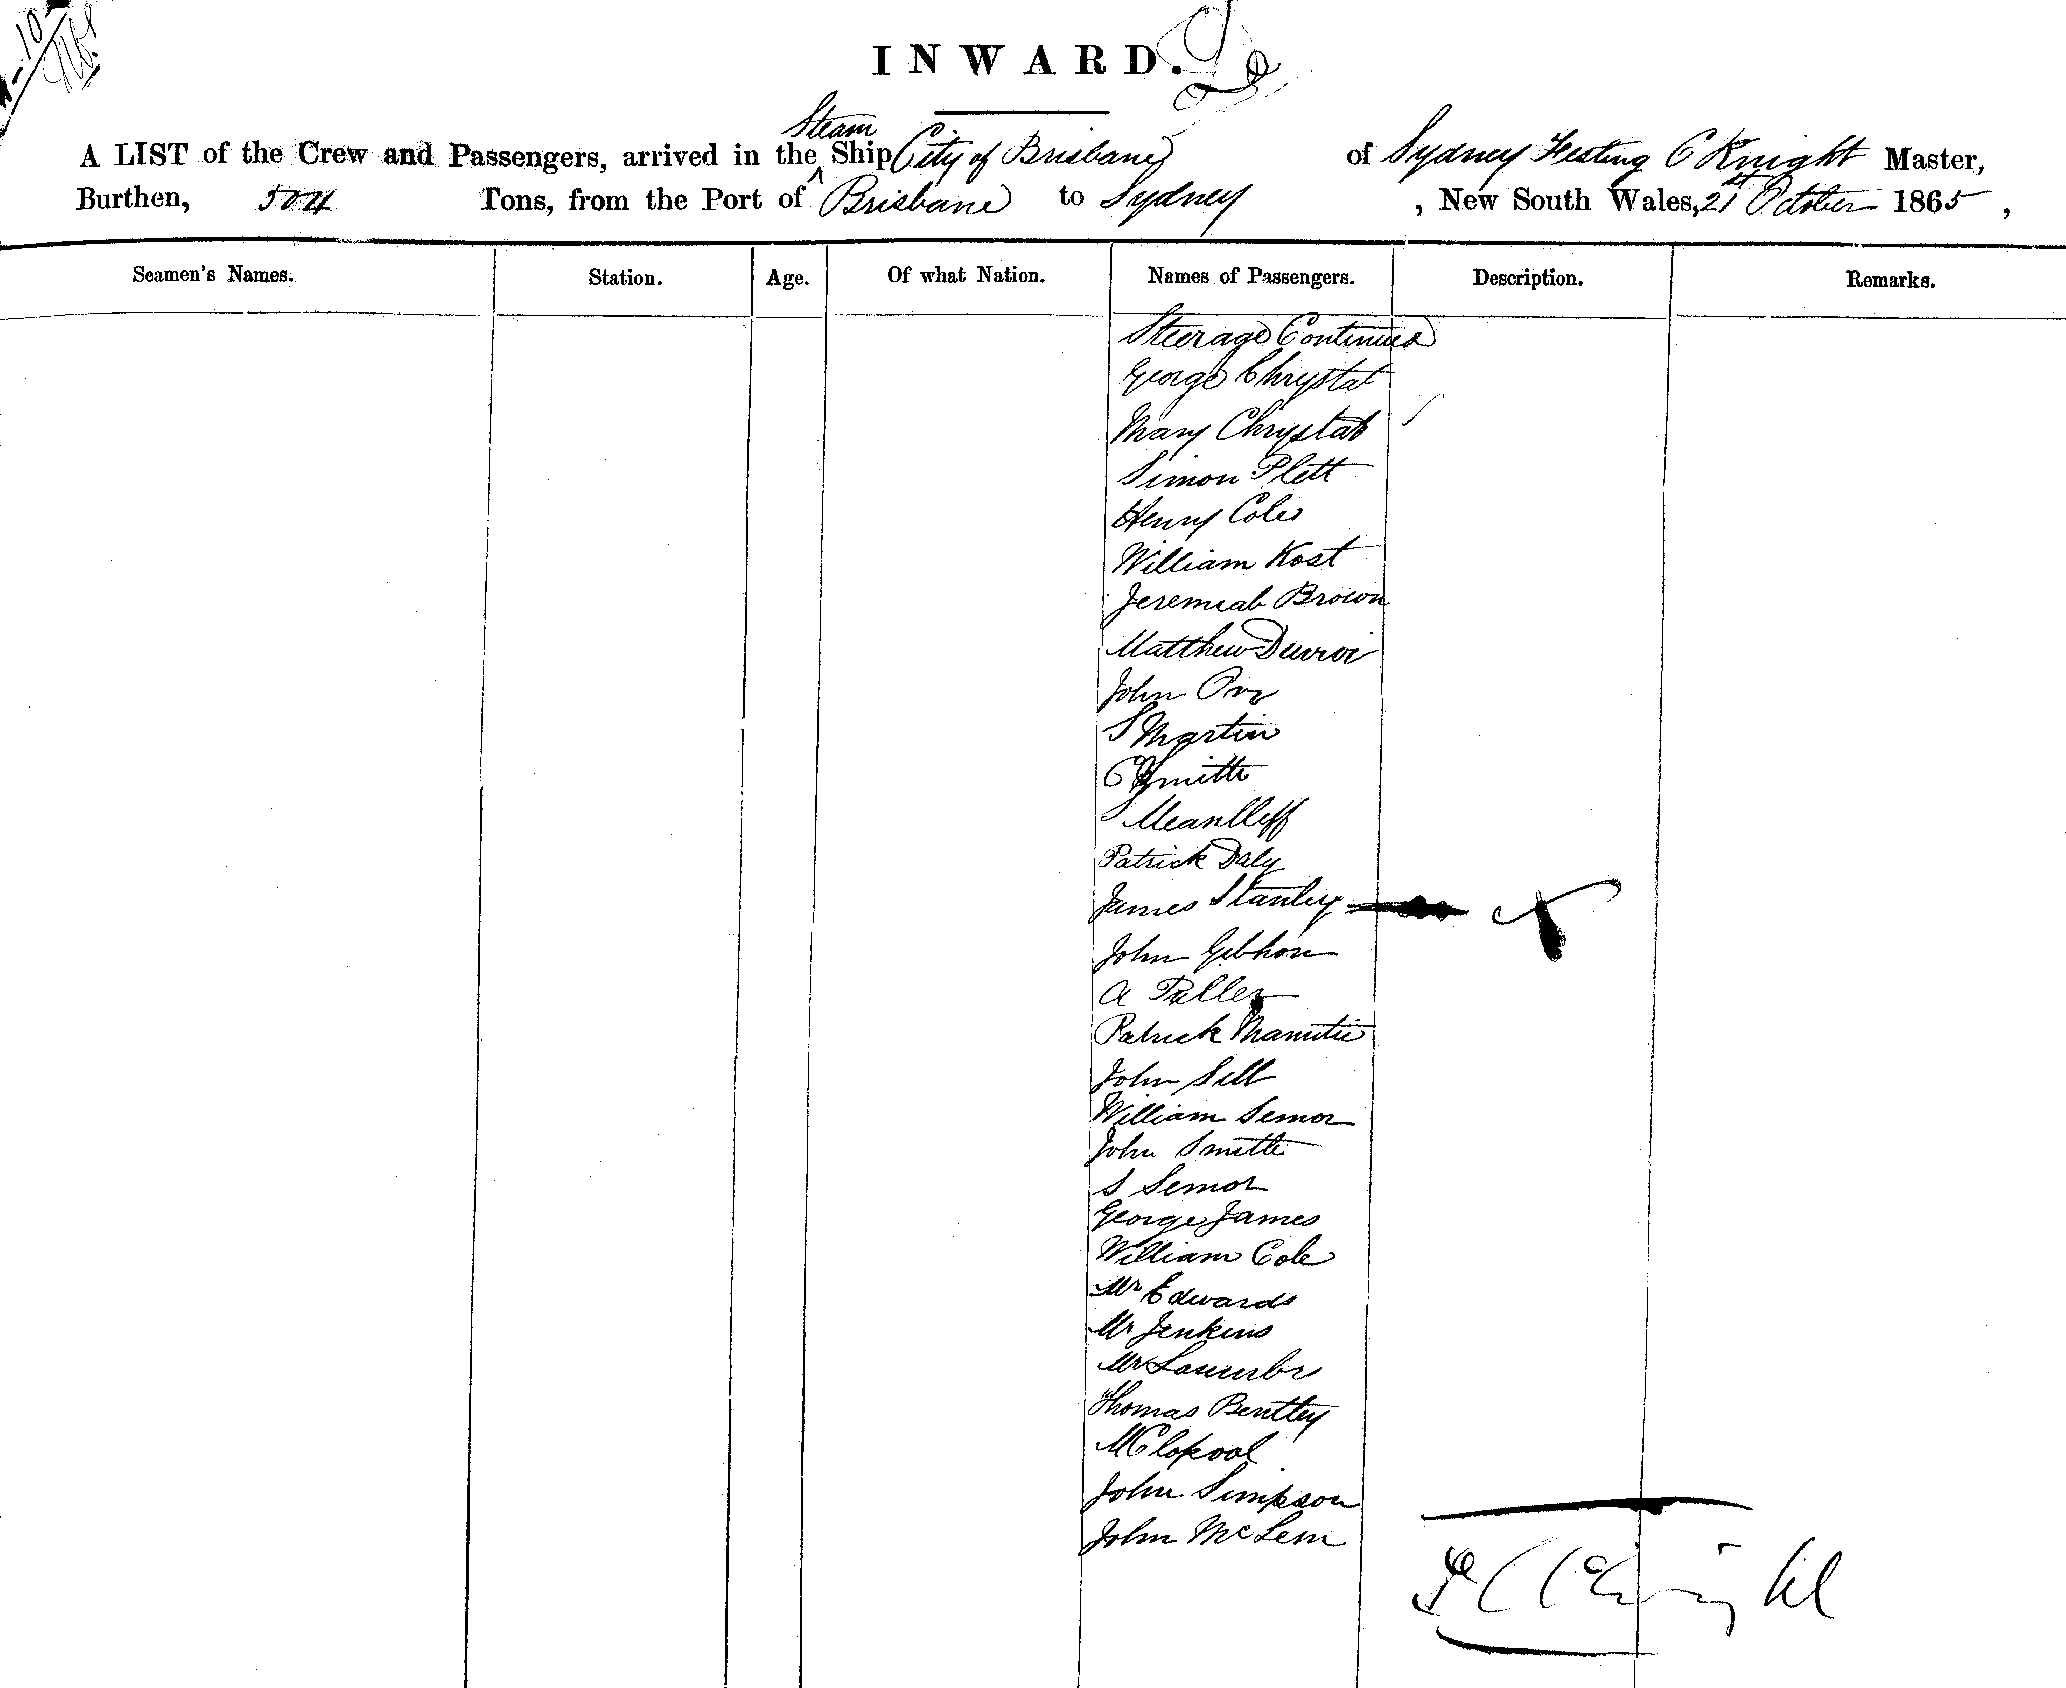 INWARD.
Steam
A LIST of the Crew and Passengers, arrived in the Ship City of Brisbane of Sydney Festing C Knight Master,
Burthen, 504 Tons, from the Port of Brisbane to Sydney , New South Wales, 21st October 1865 ,
Seamen's Names. Station. Age. Of what Nation. Names of Passengers. Description. Remarks.
Steerage Continued
George Chrystal
Mary Chrystal
Simon Plett
Henry Coles
William Kost
Jeremiah Brown
Matthew
John Orr
S Martin
C Smith
Patrick Daly
James Stanley
John Gibhon
A Puller
Patrick
John Sill
William Semor
John Smith
S Semor
George James
William Cole
Mr Edwards
Mr Jenkins
Mr
Thomas Bentley
John Simpson
John McLem
F C Knight